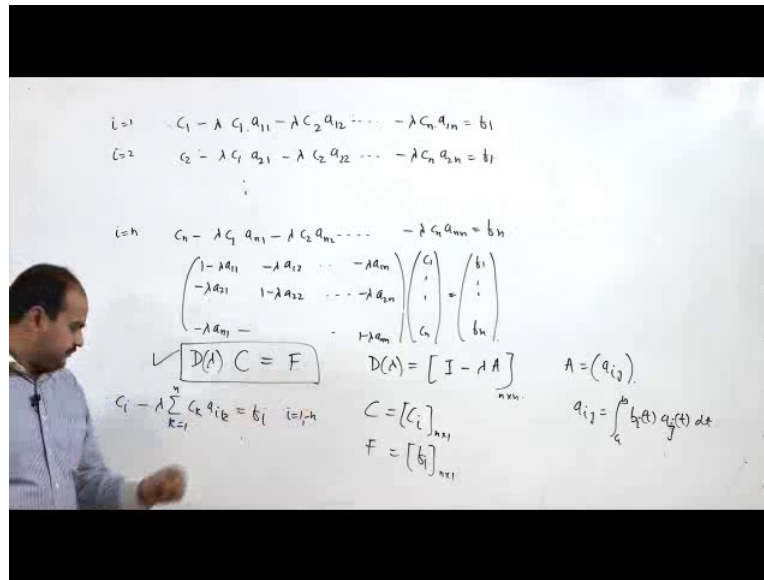 i=1 C₁ − λ C₁ a₁₁ − λ C₂ a₁₂ ····· − λ Cₙ a₁ₙ = f₁
i=2 C₂ − λ C₁ a₂₁ − λ C₂ a₂₂ ··· − λ Cₙ a₂ₙ = f₁
⋮
i=n Cₙ − λ C₁ aₙ₁ − λ C₂ aₙ₂ ···· − λ Cₙ aₙₙ = fₙ
(1−λa₁₁ −λa₁₂ ·· −λa₁ₙ) (C₁) (f₁)
−λa₂₁ 1−λa₂₂ ··· −λa₂ₙ ⋮ = ⋮
−λaₙ₁ − · 1−λaₙₙ Cₙ fₙ
✓ D(λ) C = F D(λ) = [I − λA]ₙₓₙ A = (aᵢⱼ).
Cᵢ − λ ∑ₖ₌₁ⁿ Cₖ aᵢₖ = fᵢ i=1,-n C = [Cᵢ]ₙₓ₁ aᵢⱼ = ∫ₐᵇ bᵢ(t) aⱼ(t) dt
F = [fᵢ]ₙₓ₁